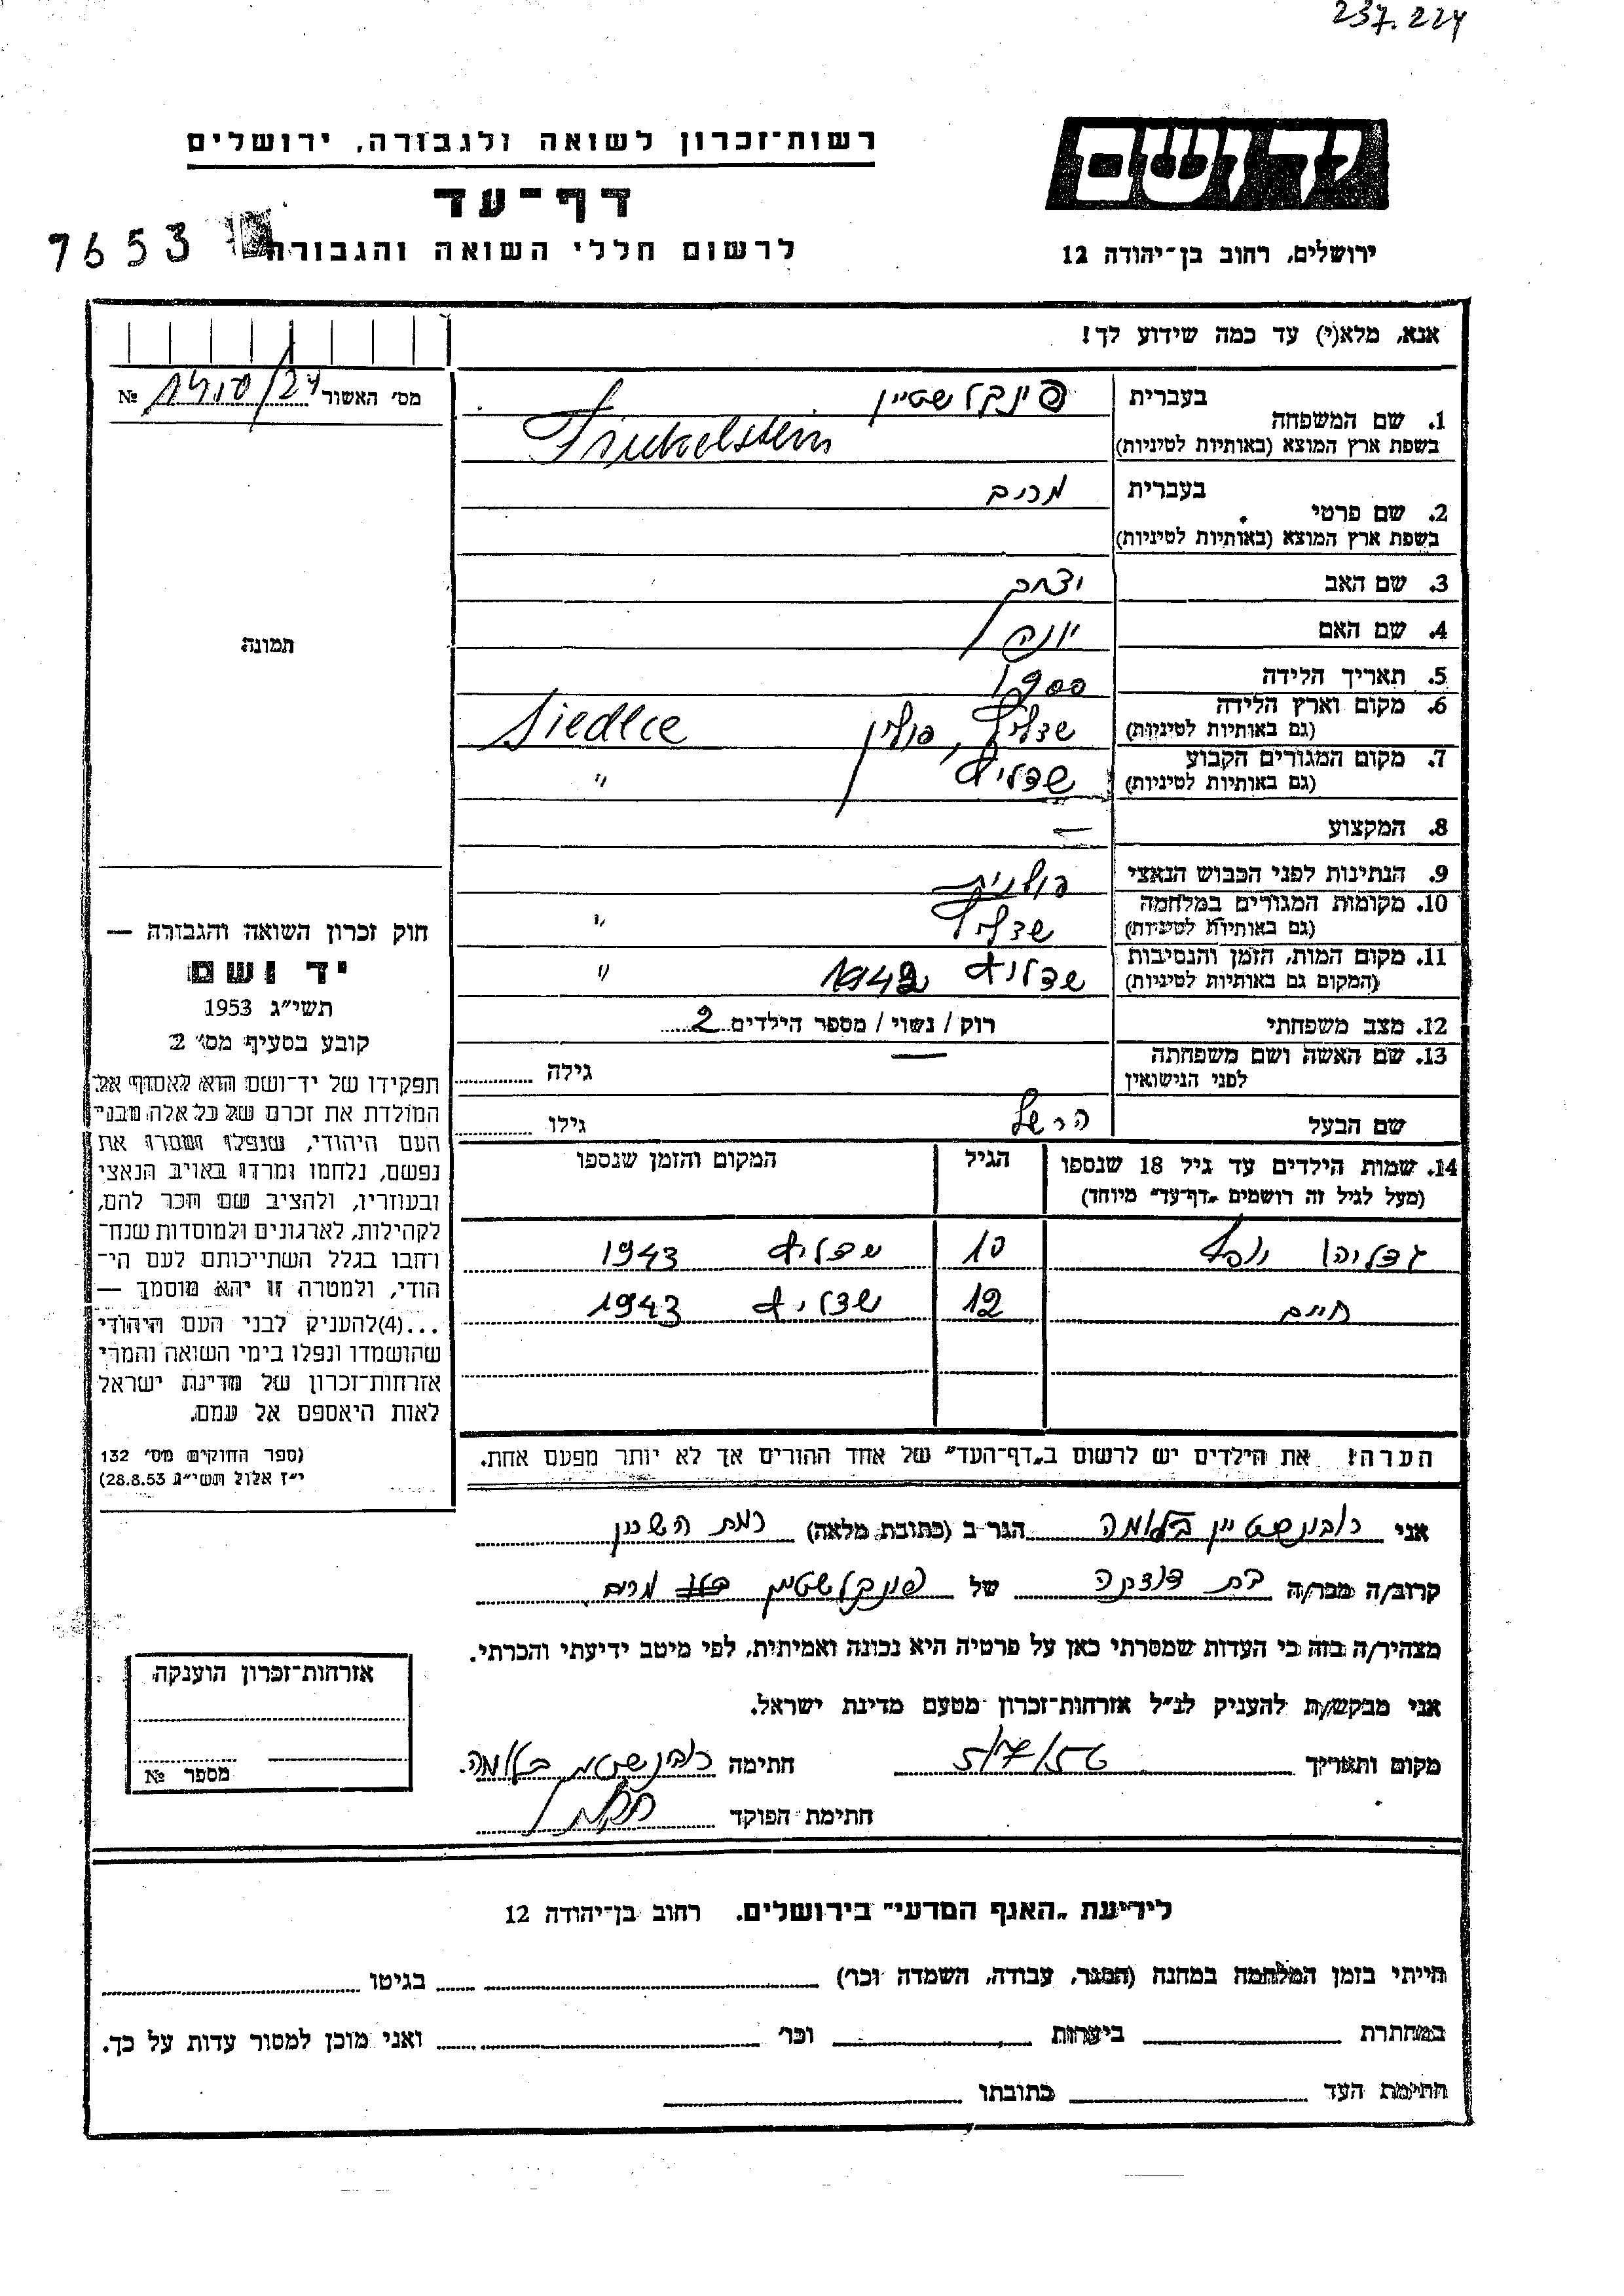 237.224
יד ושם
רשות־זכרון לשואה ולגבורה, ירושלים
דף־עד
לרשום חללי השואה והגבורה
7653
ירושלים, רחוב בן־יהודה 12
אנא, מלא(י) עד כמה שידוע לך!
מס׳ האשור №
1. שם המשפחה
בעברית פינקלשטיין
בשפת ארץ המוצא (באותיות לטיניות) Finkelstein
2. שם פרטי
בעברית מרים
בשפת ארץ המוצא (באותיות לטיניות)
3. שם האב יצחק
4. שם האם יונה
5. תאריך הלידה 1900
6. מקום וארץ הלידה
(גם באותיות לטיניות) שדליץ, פולין Siedlce
7. מקום המגורים הקבוע
(גם באותיות לטיניות) שדליץ "
8. המקצוע —
9. הנתינות לפני הכבוש הנאצי פולנית
10. מקומות המגורים במלחמה
(גם באותיות לטיניות) שדליץ "
11. מקום המות, הזמן והנסיבות
(המקום גם באותיות לטיניות) שדליץ 1942 "
12. מצב משפחתי רוק / נשוי / מספר הילדים 2
13. שם האשה ושם משפחתה
לפני הנישואין גילה
שם הבעל הרשל גילו
14. שמות הילדים עד גיל 18 שנספו
(מעל לגיל זה רושמים „דף־עד״ מיוחד)
הגיל
המקום והזמן שנספו
גדליהו 10 שדליץ 1943
חיים 12 שדליץ 1943
הערה! את הילדים יש לרשום ב„דף־העד״ של אחד ההורים אך לא יותר מפעם אחת.
תמונה
חוק זכרון השואה והגבורה —
יד ושם
תשי״ג 1953
קובע בסעיף מס׳ 2
תפקידו של יד־ושם הוא לאסוף אל
המולדת את זכרם של כל אלה מבני
העם היהודי, שנפלו ומסרו את
נפשם, נלחמו ומרדו באויב הנאצי
ובעוזריו, ולהציב שם וזכר להם,
לקהילות, לארגונים ולמוסדות שנח־
רבו בגלל השתייכותם לעם הי־
הודי, ולמטרה זו יהא מוסמך —
...(4)להעניק לבני העם היהודי
שהושמדו ונפלו בימי השואה והמרי
אזרחות־זכרון של מדינת ישראל
לאות היאספם אל עמם.
(ספר החוקים מס׳ 132
י״ז אלול תשי״ג 28.8.53)
אני רובינשטיין בלומה הגר ב (כתובת מלאה) רמת השרון
קרוב/ה מכר/ה בת דודתה של פינקלשטיין מרים
מצהיר/ה בזה כי העדות שמסרתי כאן על פרטיה היא נכונה ואמיתית, לפי מיטב ידיעתי והכרתי.
אני מבקש/ת להעניק לנ״ל אזרחות־זכרון מטעם מדינת ישראל.
מקום ותאריך 5/7/56 חתימה רובינשטיין בלומה.
חתימת הפוקד
אזרחות־זכרון הוענקה
מספר №
לידיעת „האגף המדעי״ בירושלים. רחוב בן־יהודה 12
הייתי בזמן המלחמה במחנה (הסגר, עבודה, השמדה וכו׳) בגיטו
במחתרת ביערות וכו׳ ואני מוכן למסור עדות על כך.
חתימת העד כתובתו